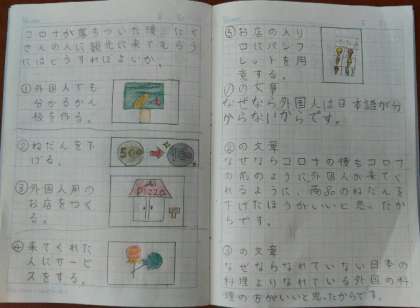 コロナが落ちついた後、たく
さんの人に観光に来てもらう
にはどうすればよいか。
①外国人でも
分かるかん
板を作る。
②ねだんを下
げる。
500
100
③外国人用の
お店をつく
る。
Pizza
④来てくれた
人にサービ
スをする。
⑤お店の入り
口にパンフ
レットを用
意する。
①の文章
なぜなら外国人は日本語が分
からないからです。
②の文章
なぜならコロナの後もコロナ
の前のように外国人が来てく
れるように、商品のねだんを
下げたほうがいいと思ったか
らです。
③の文章
なぜならなれていない日本の
料理よりなれている外国の料
理の方がいいと思ったからです。